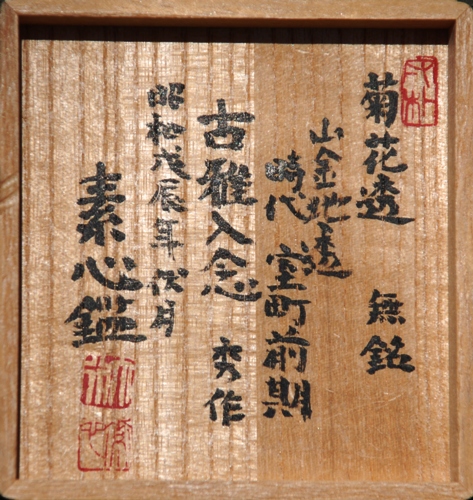 菊花透 無銘
山金地透
時代 室町前期
古雅入念 秀作
昭和戊辰年伏月
素心鑑